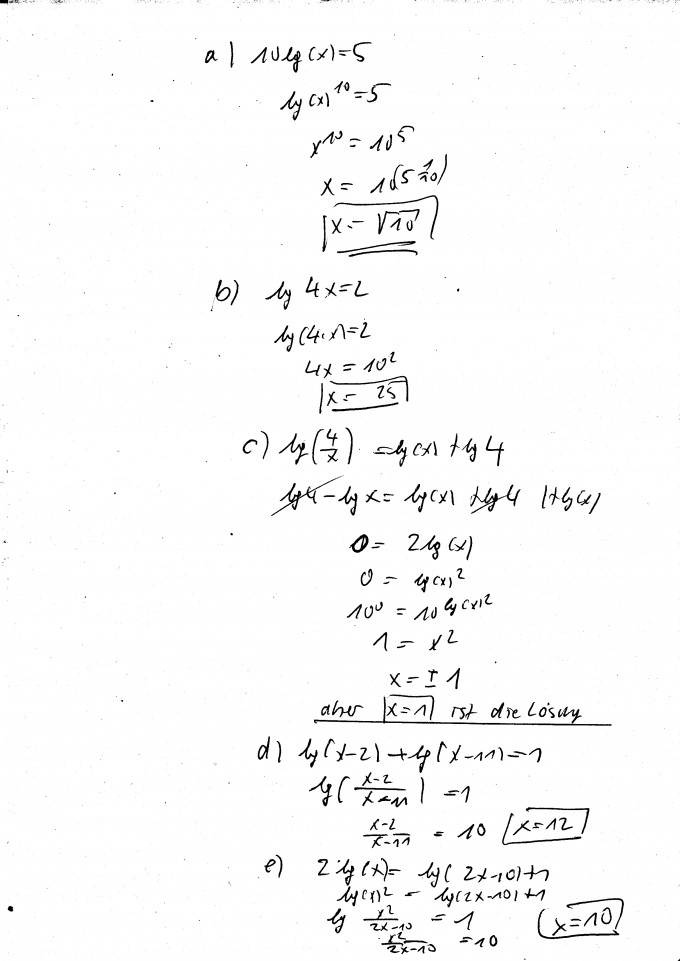 a) 10 lg(x)=5
lg(x)^10=5
x^10 = 10^5
x = 10^(5·1/10)
x = √10
b) lg 4x=2
lg(4·x)=2
4x = 10^2
x = 25
c) lg(4/x) = lg(x) + lg 4
lg4 - lg x = lg(x) + lg4 |+lg(x)
0 = 2 lg(x)
0 = lg(x)^2
10^0 = 10^lg(x)^2
1 = x^2
x = ± 1
aber x=1 ist die Lösung
d) lg(x-2) + lg(x-11)=1
lg((x-2)/(x-11)) = 1
(x-2)/(x-11) = 10 x=12
e) 2·lg(x)= lg(2x-10)+1
lg(x)^2 = lg(2x-10)+1
lg x^2/(2x-10) = 1 x=10
x^2/(2x-10) = 10